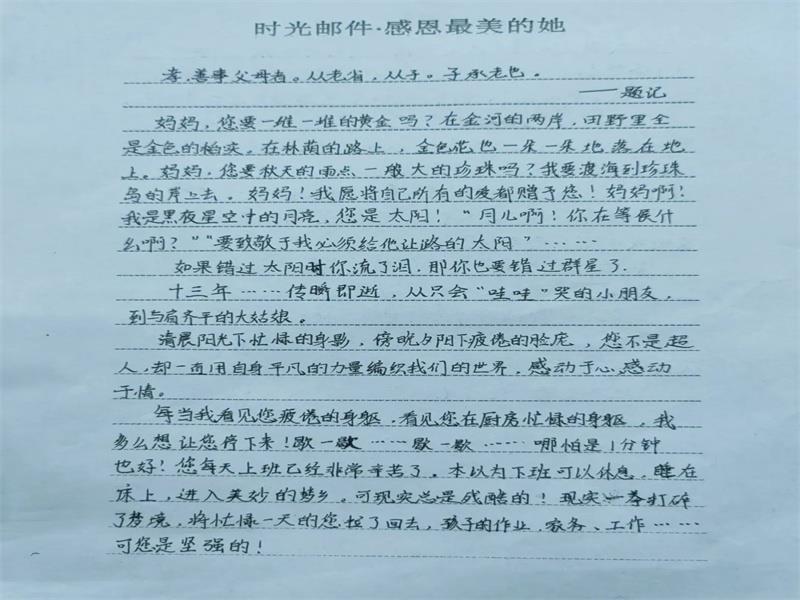 时光邮件·感恩最美的她
孝,善事父母者。从老省,从子。子承老也。
——题记
妈妈,您要一堆一堆的黄金吗?在金河的两岸,田野里全
是金色的柏实。在林荫的路上,金色花也一朵一朵地落在地
上。妈妈,您要秋天的雨点一般大的珍珠吗?我要渡海到珍珠
岛的岸上去。妈妈!我愿将自己所有的爱都赠予您!妈妈啊!
我是黑夜星空中的月亮,您是太阳!“月儿啊!你在等候什
么啊?”“要致敬于我必须给他让路的太阳”……
如果错过太阳时你流了泪,那你也要错过群星了.
十三年……传瞬即逝,从只会“哇哇”哭的小朋友,
到与肩齐平的大姑娘。
清晨阳光下忙碌的身影,傍晚夕阳下疲倦的脸庞,您不是超
人,却一直用自身平凡的力量编织我们的世界,感动于心,感动
于情。
每当我看见您疲倦的身躯,看见您在厨房忙碌的身躯,我
多么想让您停下来!歇一歇……歇一歇……哪怕是1分钟
也好!您每天上班已经非常辛苦了。本以为下班可以休息,睡在
床上,进入美妙的梦乡。可现实总是残酷的!现实一拳打碎
了梦境,将忙碌一天的您拉了回去,孩子的作业,家务、工作……
可您是坚强的!